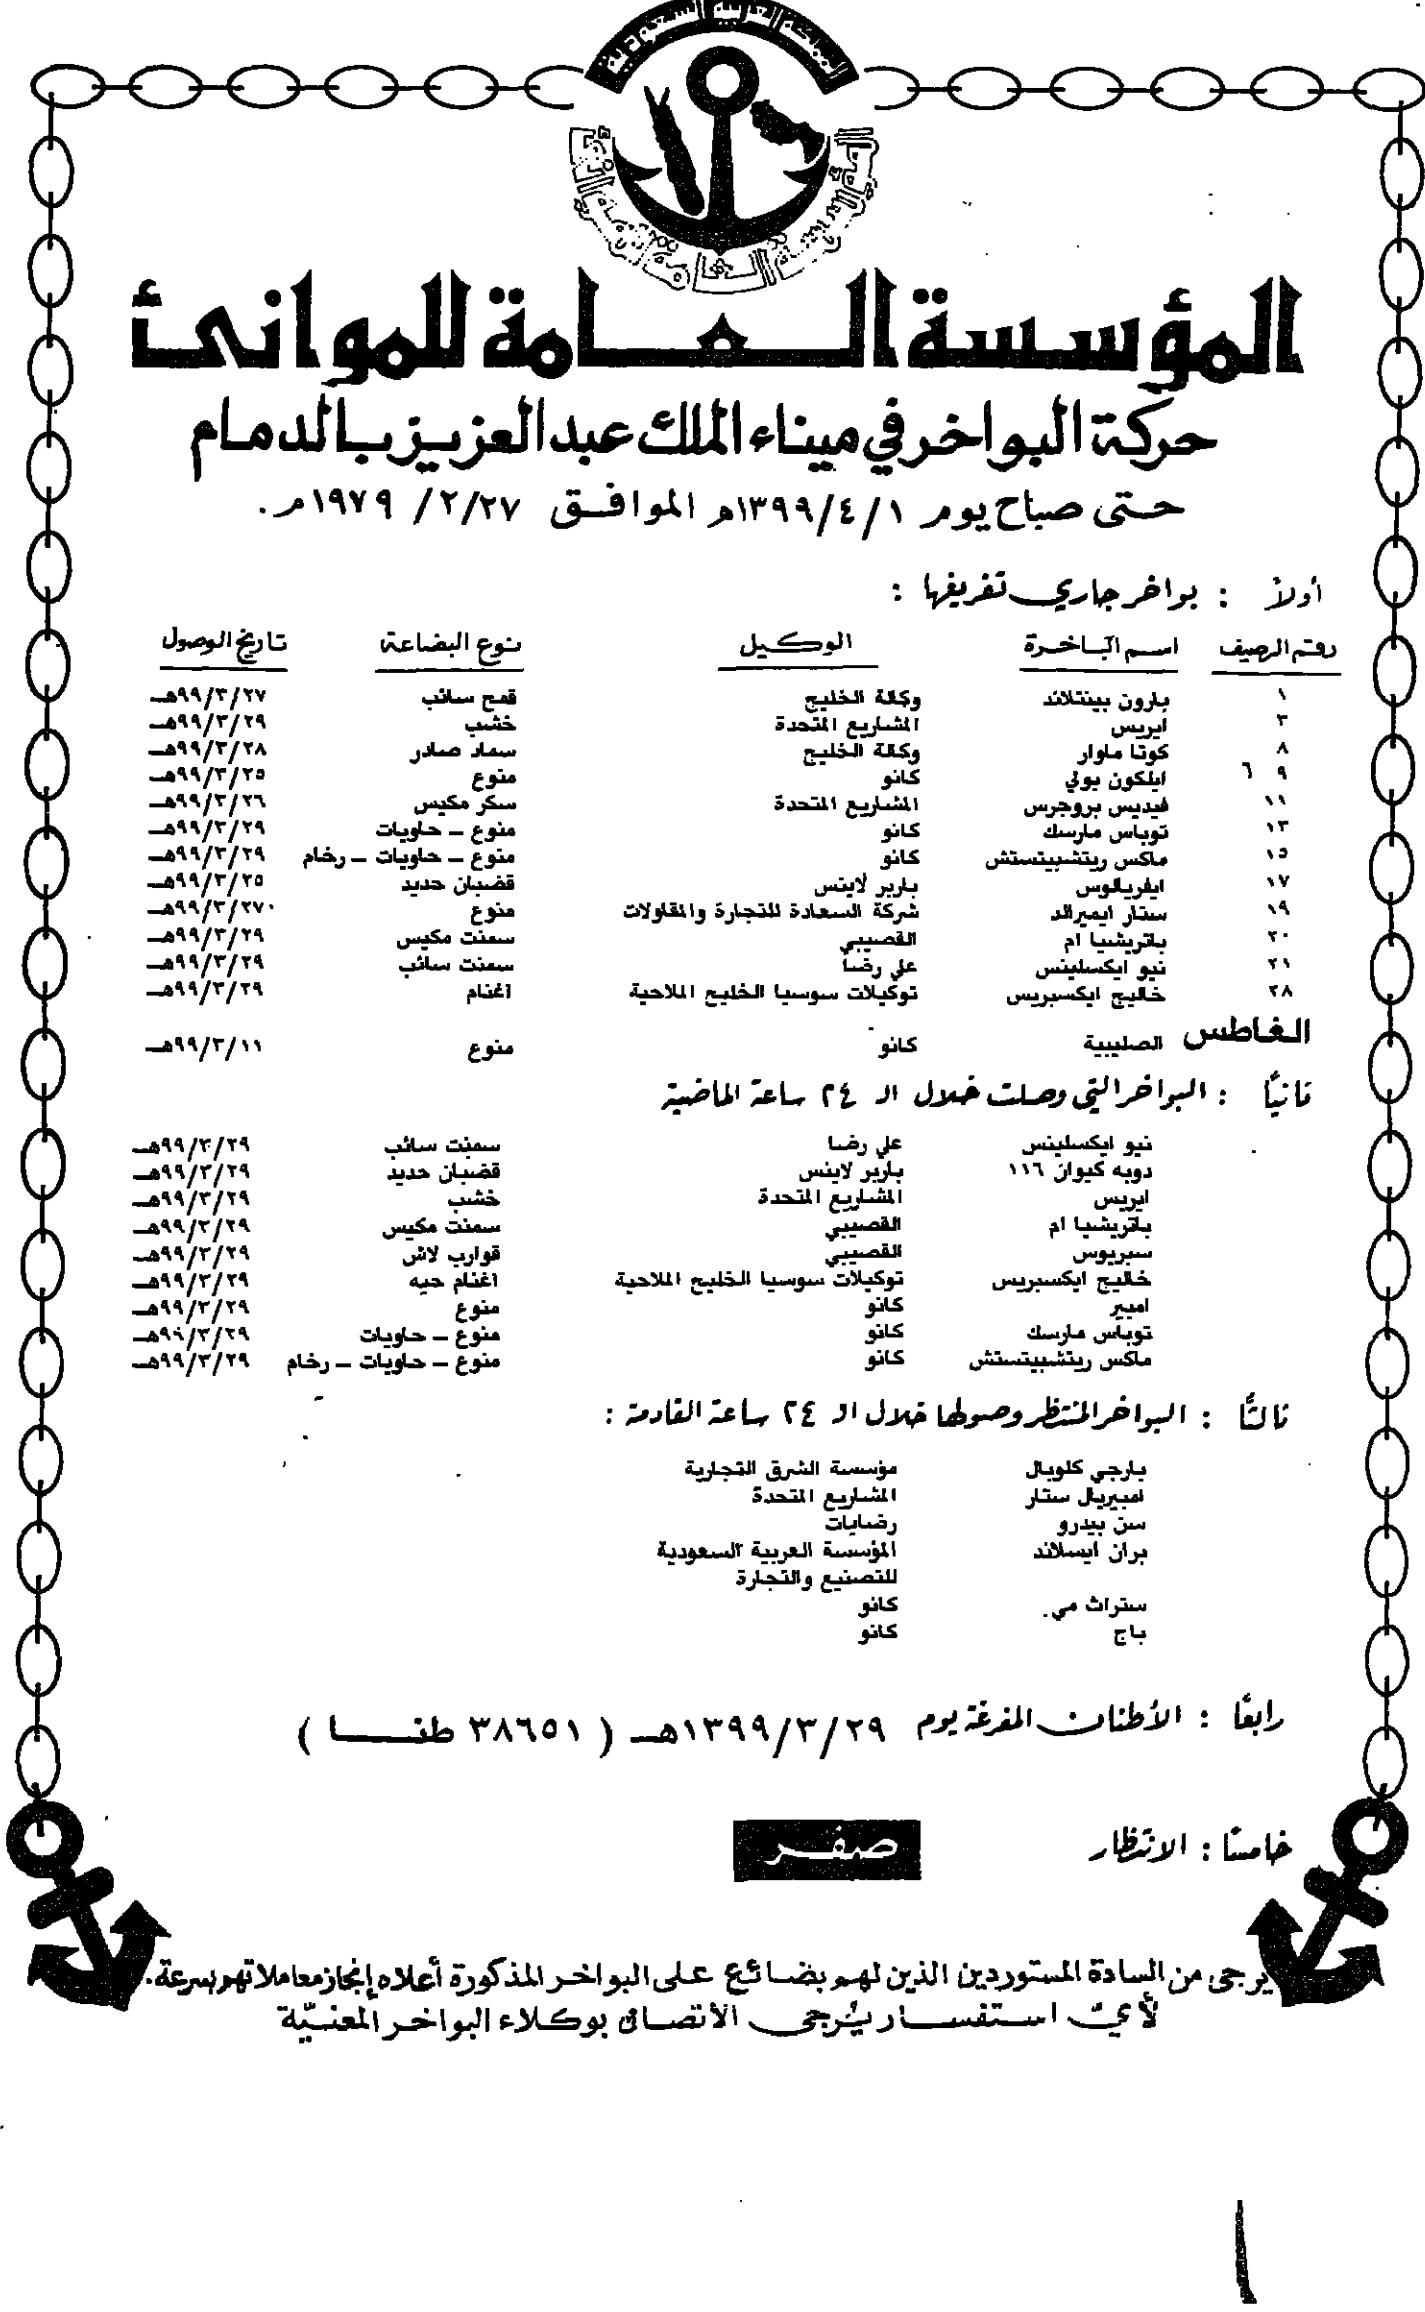 المملكة العربية السعودية
المؤسسة العامة للموانئ
المؤسسة العامة للموانئ
حركة البواخر في ميناء الملك عبد العزيز بالدمام
حتى صباح يوم ١٣٩٩/٤/١هـ الموافق ١٩٧٩/٢/٢٧م.
أولاً : بواخر جاري تفريغها :
رقم الرصيف اسم الباخرة الوكيل نوع البضاعة تاريخ الوصول
١ بارون بينتلاند وكالة الخليج قمح سائب ٩٩/٣/٢٧هـ
٣ ايريس المشاريع المتحدة خشب ٩٩/٣/٢٩هـ
٨ كوتا ماوار وكالة الخليج سماد صادر ٩٩/٣/٢٨هـ
٩ ٦ ايلكون بولي كانو منوع ٩٩/٣/٢٥هـ
١١ فيديس بروجرس المشاريع المتحدة سكر مكيس ٩٩/٣/٢٦هـ
١٣ توباس مارسك كانو منوع – حاويات ٩٩/٣/٢٩هـ
١٥ ماكس ريتشبيتستش كانو منوع – حاويات – رخام ٩٩/٣/٢٩هـ
١٧ ايفريالوس باربر لاينس قضبان حديد ٩٩/٣/٢٥هـ
١٩ ستار ايميرالد شركة السعادة للتجارة والمقاولات منوع ٩٩/٣/٢٧٠هـ
٢٠ باتريشيا ام القصيبي سمنت مكيس ٩٩/٣/٢٩هـ
٢١ نيو ايكسلينس علي رضا سمنت سائب ٩٩/٣/٢٩هـ
٢٨ خاليج ايكسبريس توكيلات سوسيا الخليج الملاحية اغنام ٩٩/٣/٢٩هـ
الغاطس الصليبية كانو منوع ٩٩/٣/١١هـ
ثانياً : البواخر التي وصلت خلال الـ ٢٤ ساعة الماضية
نيو ايكسلينس علي رضا سمنت سائب ٩٩/٣/٢٩هـ
دوبه كيوان ١١٦ باربر لاينس قضبان حديد ٩٩/٣/٢٩هـ
ايريس المشاريع المتحدة خشب ٩٩/٣/٢٩هـ
باتريشيا ام القصيبي سمنت مكيس ٩٩/٣/٢٩هـ
سيريوس القصيبي قوارب لاش ٩٩/٣/٢٩هـ
خاليج ايكسبريس توكيلات سوسيا الخليج الملاحية اغنام حيه ٩٩/٣/٢٩هـ
امبير كانو منوع ٩٩/٣/٢٩هـ
توباس مارسك كانو منوع – حاويات ٩٩/٣/٢٩هـ
ماكس ريتشبيتستش كانو منوع – حاويات – رخام ٩٩/٣/٢٩هـ
ثالثاً : البواخر المنتظر وصولها خلال الـ ٢٤ ساعة القادمة :
بارجي كلوبال مؤسسة الشرق التجارية
امبيريال ستار المشاريع المتحدة
سن بيدرو رضايات
بران ايسلاند المؤسسة العربية السعودية
للتصنيع والتجارة
ستراث مي. كانو
باج كانو
رابعاً : الأطنان المفرغة يوم ١٣٩٩/٣/٢٩هـ ( ٣٨٦٥١ طنا )
خامساً : الانتظار صفر
يرجى من السادة المستوردين الذين لهم بضائع على البواخر المذكورة أعلاه إنجاز معاملاتهم بسرعة.
لأي استفسار يُرجى الأتصال بوكلاء البواخر المعنيّة